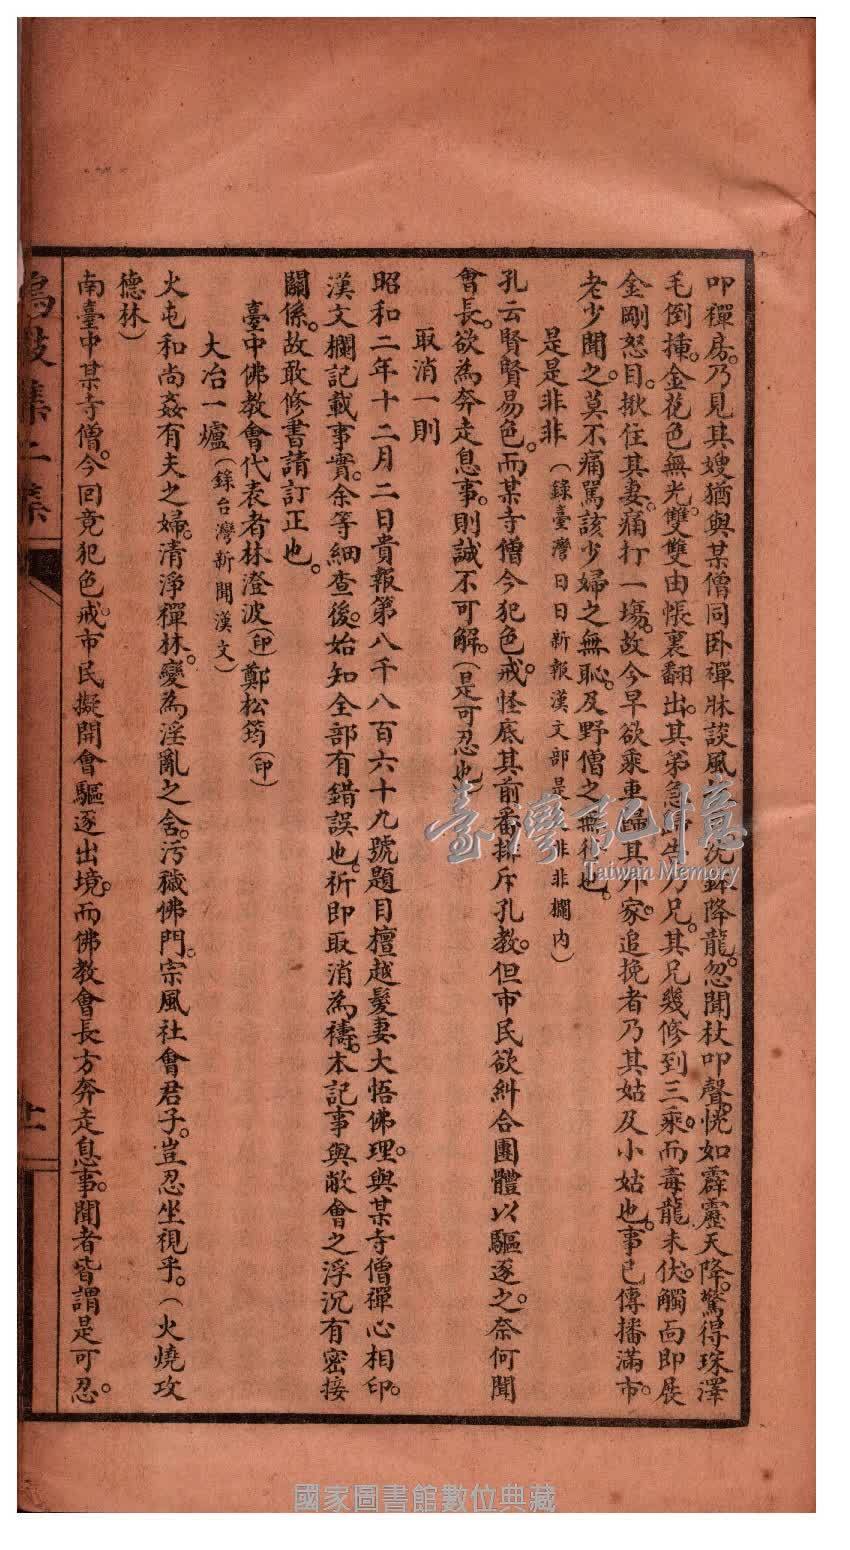 叩禪房。乃見其嫂猶與某僧同臥禪牀談風 鉢降龍。忽聞杖叩聲。恍如霹靂天降。驚得琛澤
毛倒搢。金花色無光。雙雙由帳裏翻出。其弟急歸告乃兄。其兄幾修到三乘。而毒龍未伏。觸面即展
金剛怒目。揪住其妻。痛打一塲。故今早欲乘車歸其外家。追挽者乃其姑及小姑也。事已傳播滿市。
老少聞之。莫不痛罵該少婦之無恥。及野僧之無 也。
是是非非 (錄臺灣日日新報漢文部是 非非欄內)
孔云賢賢易色。而某寺僧今犯色戒。怪底其前番排斥孔教。但市民欲糾合團體以驅逐之。奈何聞
會長。欲為奔走息事。則誠不可解。(是可忍也)
取消一則
昭和二年十二月二日貴報第八千八百六十九號題目檀越髮妻大悟佛理。與某寺僧禪心相印。
漢文欄記載事實。余等細查後。始知全部有錯誤也。祈即取消為禱。本記事與敝會之浮沉有密接
關係。故敢修書請訂正也。
臺中佛教會代表者林澄波(印)鄭松筠(印)
大冶一爐(錄台灣新聞漢文)
火屯和尚姦有夫之婦。清淨禪林。變為淫亂之舍。污穢佛門。宗風社會君子。豈忍坐視乎。(火燒攻
德林)
南臺中某寺僧。今回竟犯色戒。市民擬開會驅逐出境。而佛教會長方奔走息事。聞者皆謂是可忍。
鳴鼓集二集
臺灣記憶
Taiwan Memory
國家圖書館數位典藏